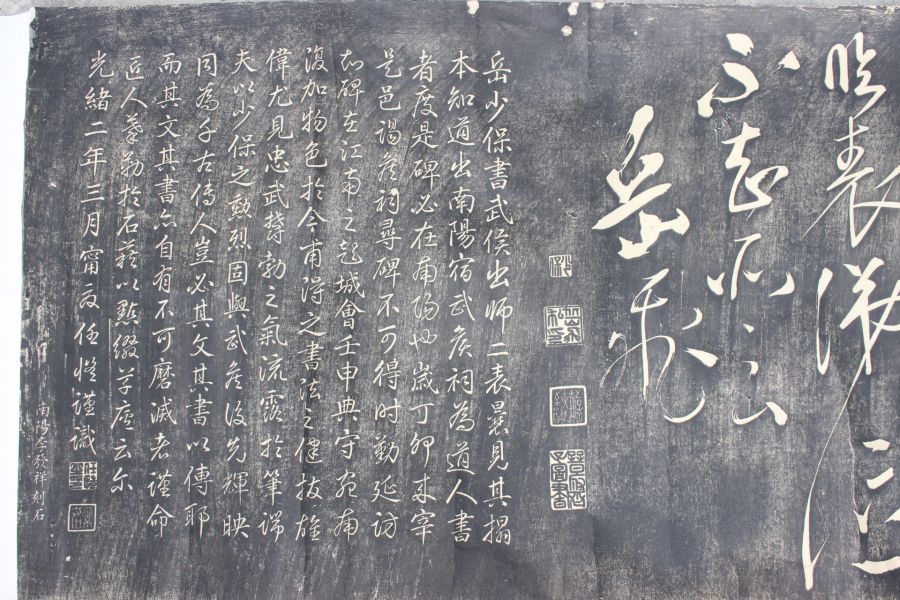 臨表涕泣
不知所云
岳飛
岳少保書武侯出師二表曩見其搨
本知道出南陽宿武矦祠為道人書
者度是碑必在南陽也歲丁卯來宰
是邑謁矦祠尋碑不可得時勤延訪
知碑在江南之彭城會壬申典守宛南
復加物色於今甫得之書法之健拔雄
偉尤見忠武勃勃之氣流露於筆端
夫以少保之勲烈固與武矦後先輝映
同為千古傳人豈必其文其書以傳耶
而其文其書亦自有不可磨滅者謹命
匠人摹勒於石藉以點綴草廬云尔
光緒二年三月甯友任愷謹識
南陽李發祥刻石